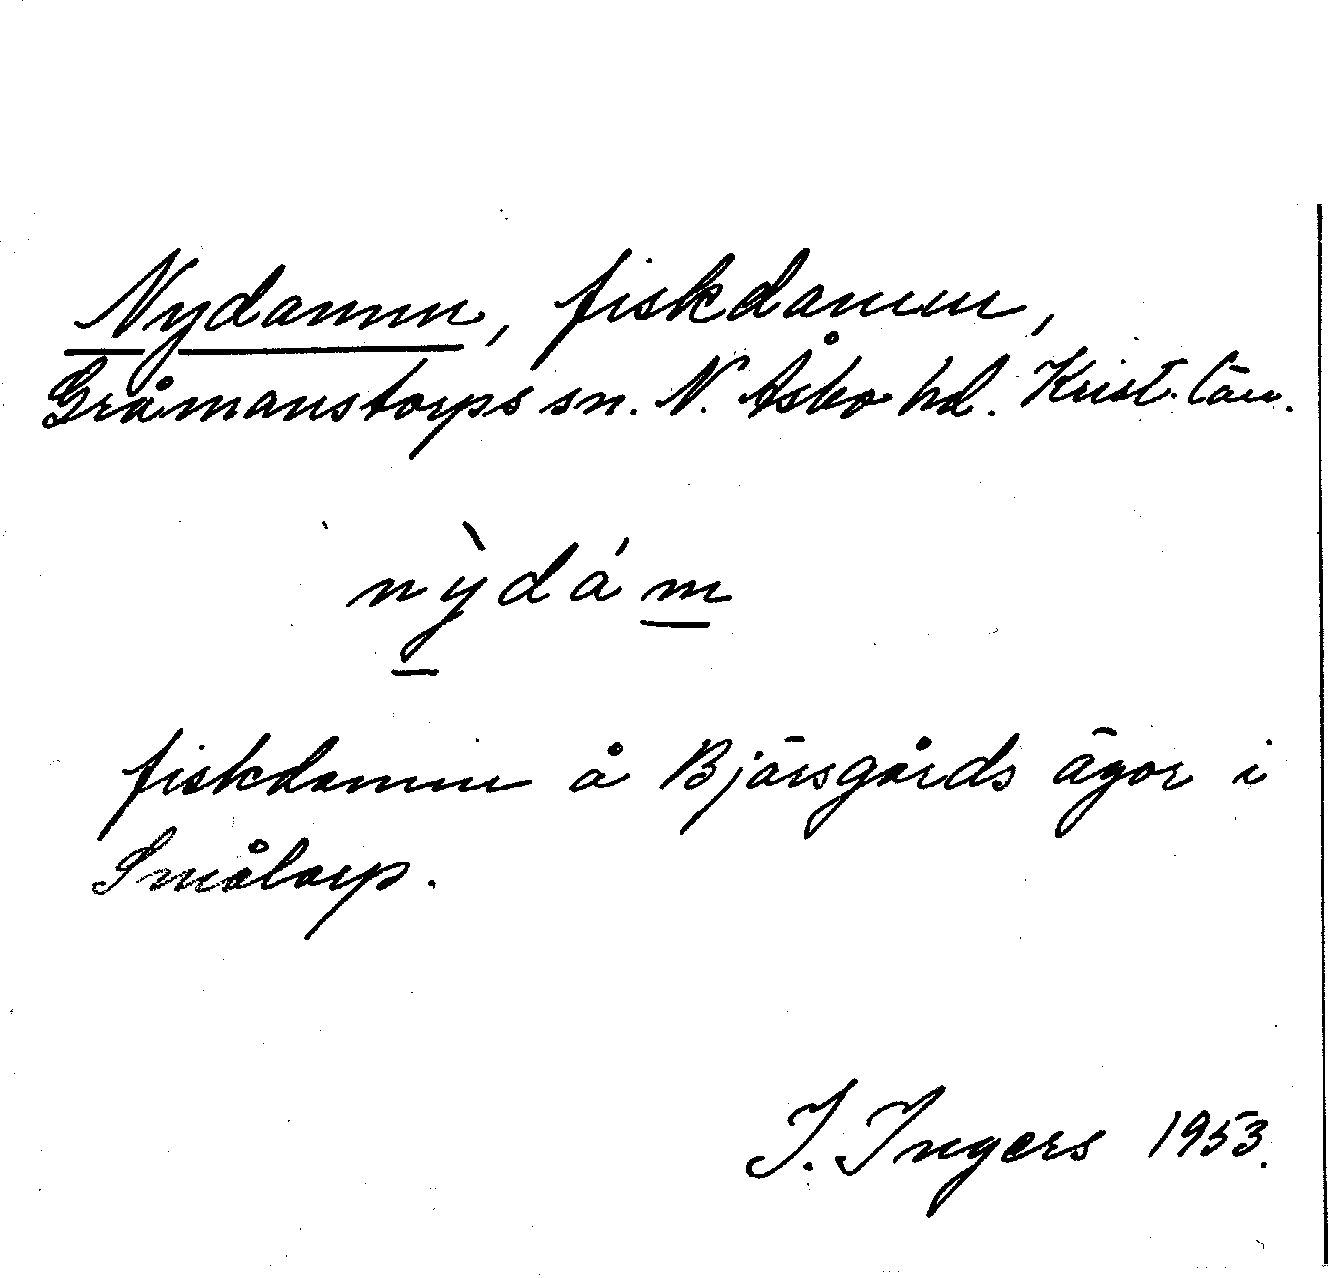 Nydamm, fiskdamm,
Gråmanstorps sn. N. Åsbo hd. Krist. län.
nỳdám
fiskdamm å Bjärsgårds ägor i
Småtorp.
I. Ingers 1953.